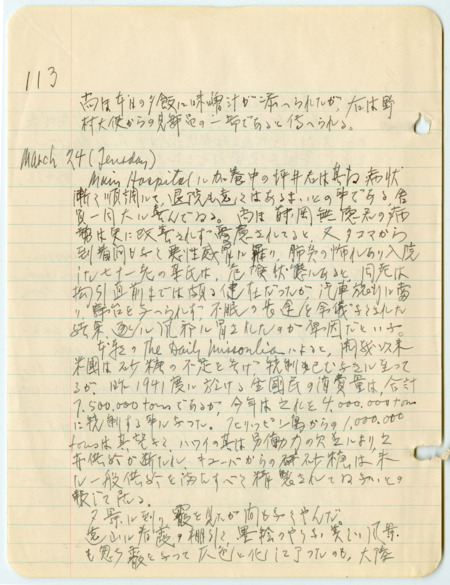 113
尚ほ本日の夕飯に味噌汁が添へられたが、右は野
村大使からの見舞品の一部であると傳へられる。
March 24 (Tuesday)
Main Hospital に加養中の坪井君は其后病状
漸く順調にて、退院も遠くはあるまいとの事である。舎
員一同大に喜んでゐる。尚ほ 岡無 君の病
勢は更に改善されず憂慮されてると、又タコマから
到着間もなく悪性感冒に罹り、肺炎の怖れあり入院
した七十一先の 氏は、危険状態にあると、同氏は
拘引直前までは頗る健在だったが、汽車旅行に當
り、寝台を与へられず、不眠の長途を余儀なくされた
結果、遂に風邪に冒されたのが原因だといふ。
本日の The Daily Missoulian によると、開戦以来
米國は砂糖の不足を告げ、統制
るが、昨1941度に於ける全國民の消費量は、合計
7,500,000 tons であるが、今年は之れを 4,000,000 tons
に統制する事になつた。フヰリッピン島からの 1,000,000
tons は其 なく、ハワイの其は労働力の欠乏により、之
亦供給が断たれ、キューバからの 砂糖は未
一般供給を すべく精製されてゐないとの
報じて居る。
夕景に到り霰を見たが間もなくやんだ。
遠山に春霞の棚引く、墨絵のやうな美しい風景
も思 霰となつて 色と化し了つたのも、大陸